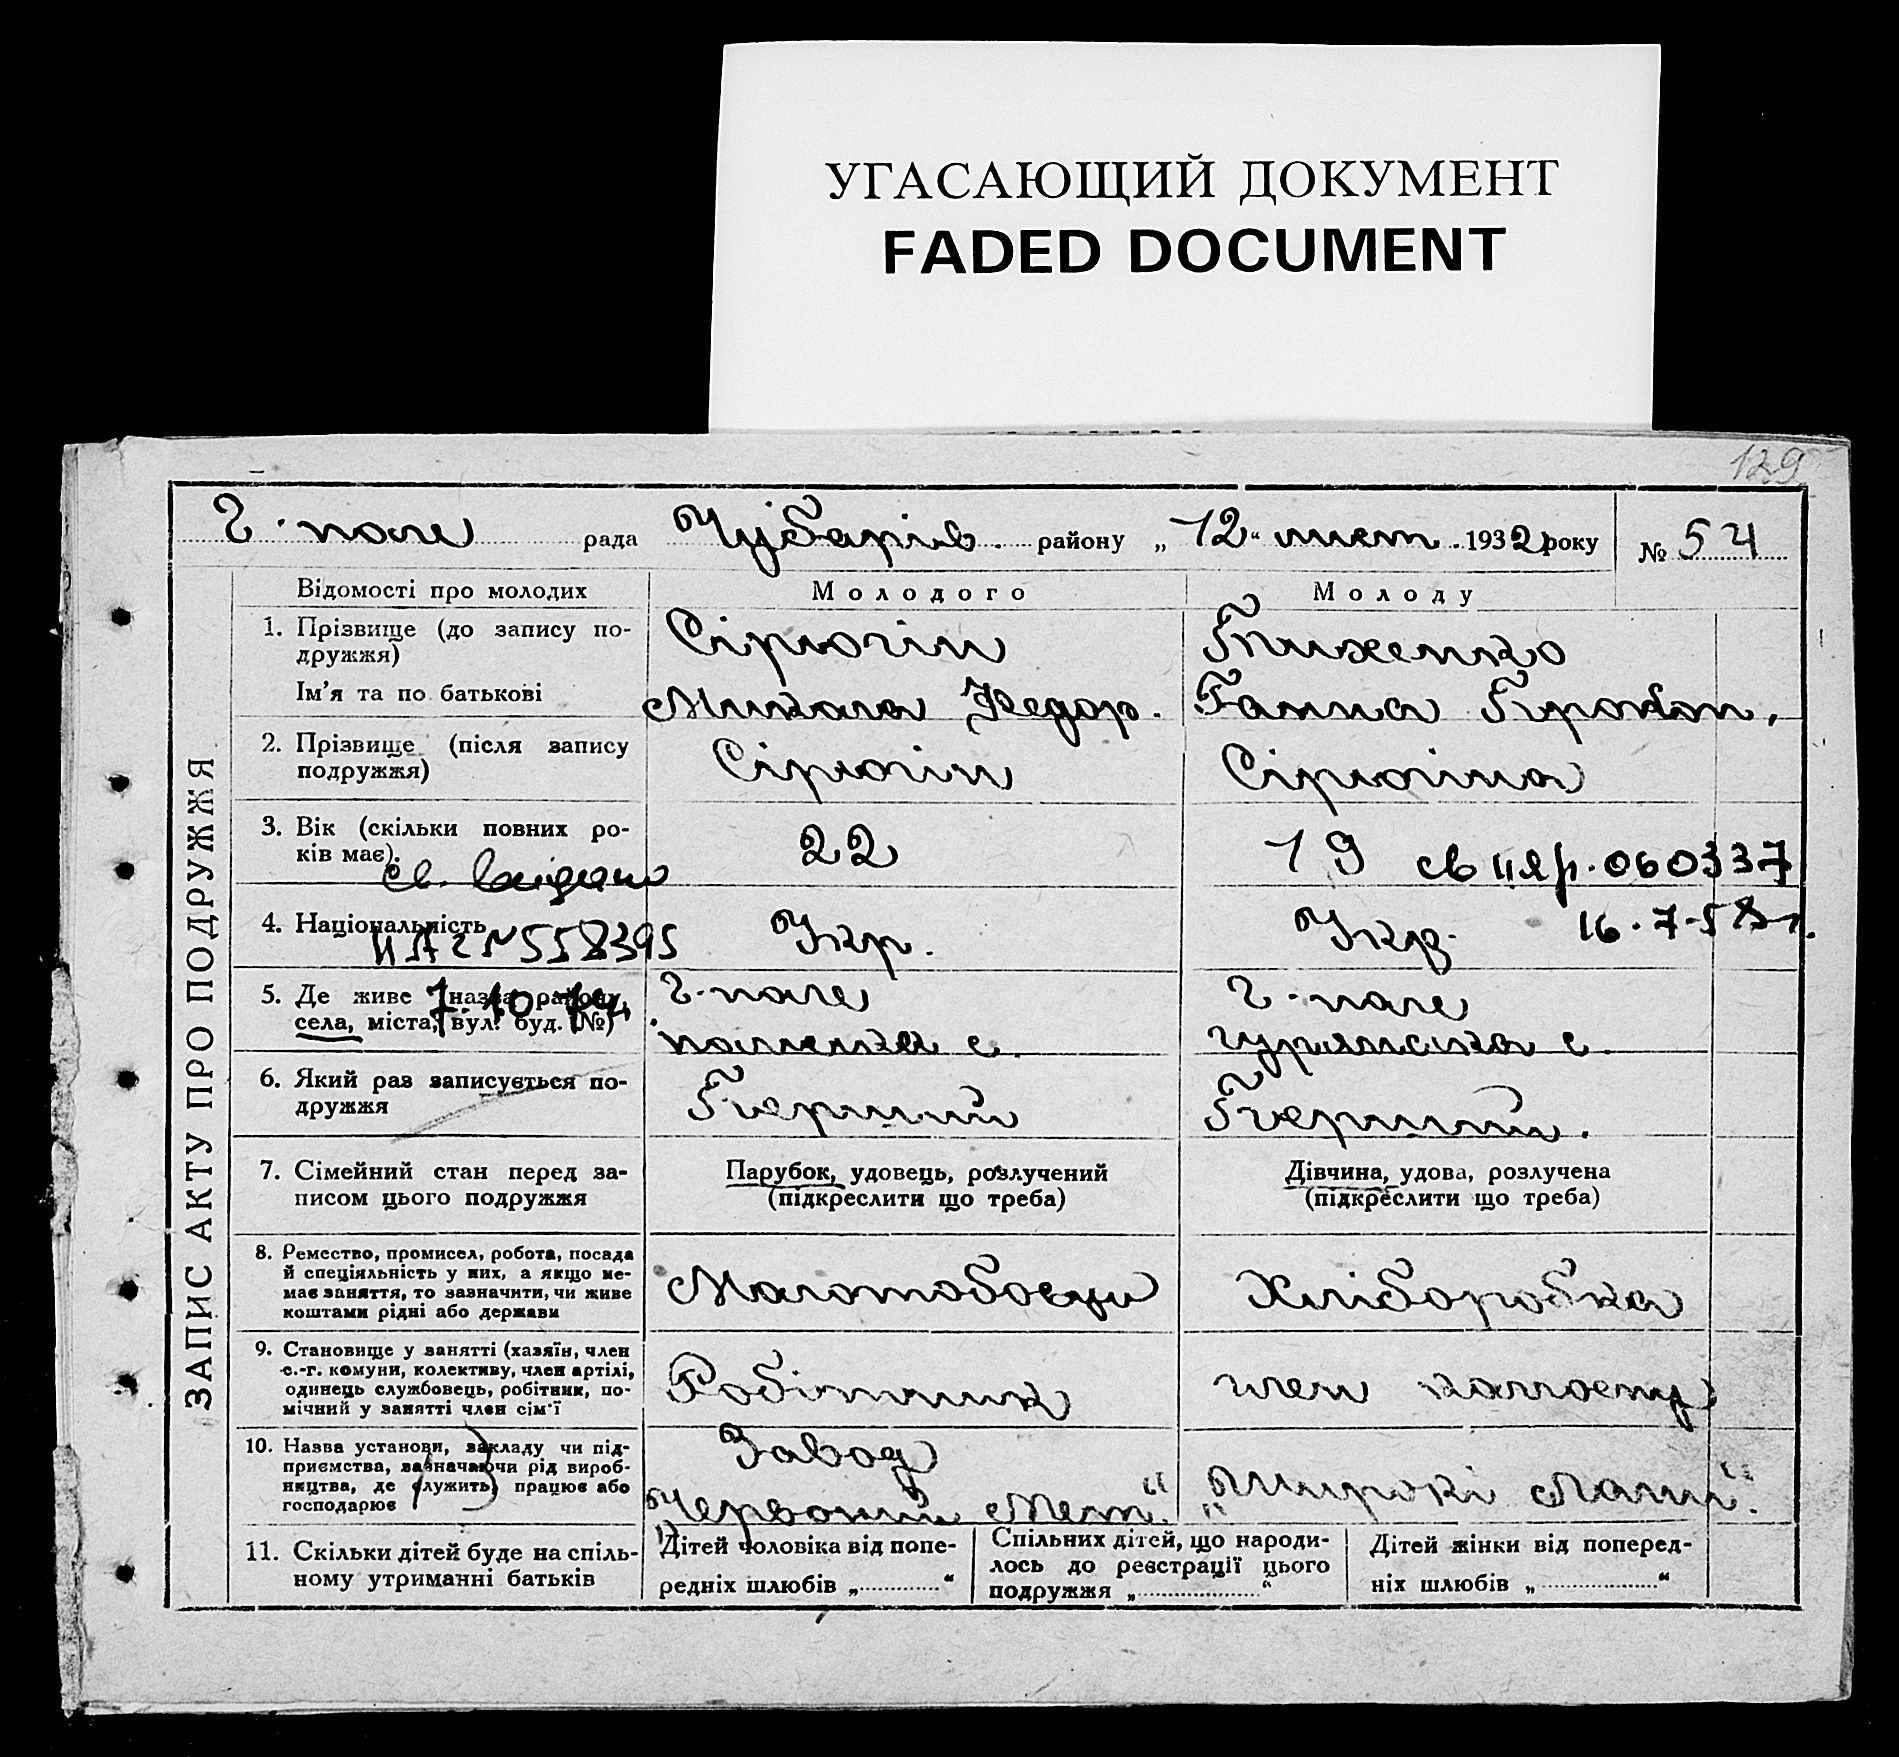 УГАСАЮЩИЙ ДОКУМЕНТ
FADED DOCUMENT
129
Г. поле рада Чубарів. району „12“ лист. 1932 року № 54
ЗАПИС АКТУ ПРО ПОДРУЖЖЯ
Відомості про молодих Молодого Молоду
1. Прізвище (до запису по-
дружжя)
Сірюгін
Ім'я та по батькові
Микола Федор. Ганна
2. Прізвище (після запису
подружжя)
Сірюгін Сірюгіна
3. Вік (скільки повних ро-
ків має).
22 19
св. видано
св ІІЯр. 060337
4. Національність
Укр. Укр.
16.7-58г.
№558395
7.10.74
5. Де живе (назва району,
села, міста, вул. буд. №)
Г. поле Г. поле
6. Який раз записується по-
дружжя
Перший Перший.
7. Сімейний стан перед за-
писом цього подружжя
Парубок, удовець, розлучений
(підкреслити що треба)
Дівчина, удова, розлучена
(підкреслити що треба)
8. Ремество, промисел, робота, посада
й спеціяльність у них, а якщо не-
має заняття, то зазначити, чи живе
коштами рідні або держави
Молотобоєць Хліборобка
9. Становище у занятті (хазяїн, член
с.-г. комуни, колективу, член артілі,
одинець службовець, робітник, по-
мічний у занятті член сім'ї
Робітник член колгоспу
10. Назва установи, закладу чи під-
приємства, зазначаючи рід вироб-
ництва, де служить, працює або
господарює
Завод
„Червоний Мет.“ „Широкі Лани“.
11. Скільки дітей буде на спіль-
ному утриманні батьків
Дітей чоловіка від попе-
редніх шлюбів „............“
Спільних дітей, що народи-
лось до реєстрації цього
подружжя „............“
Дітей жінки від поперед-
ніх шлюбів „............“